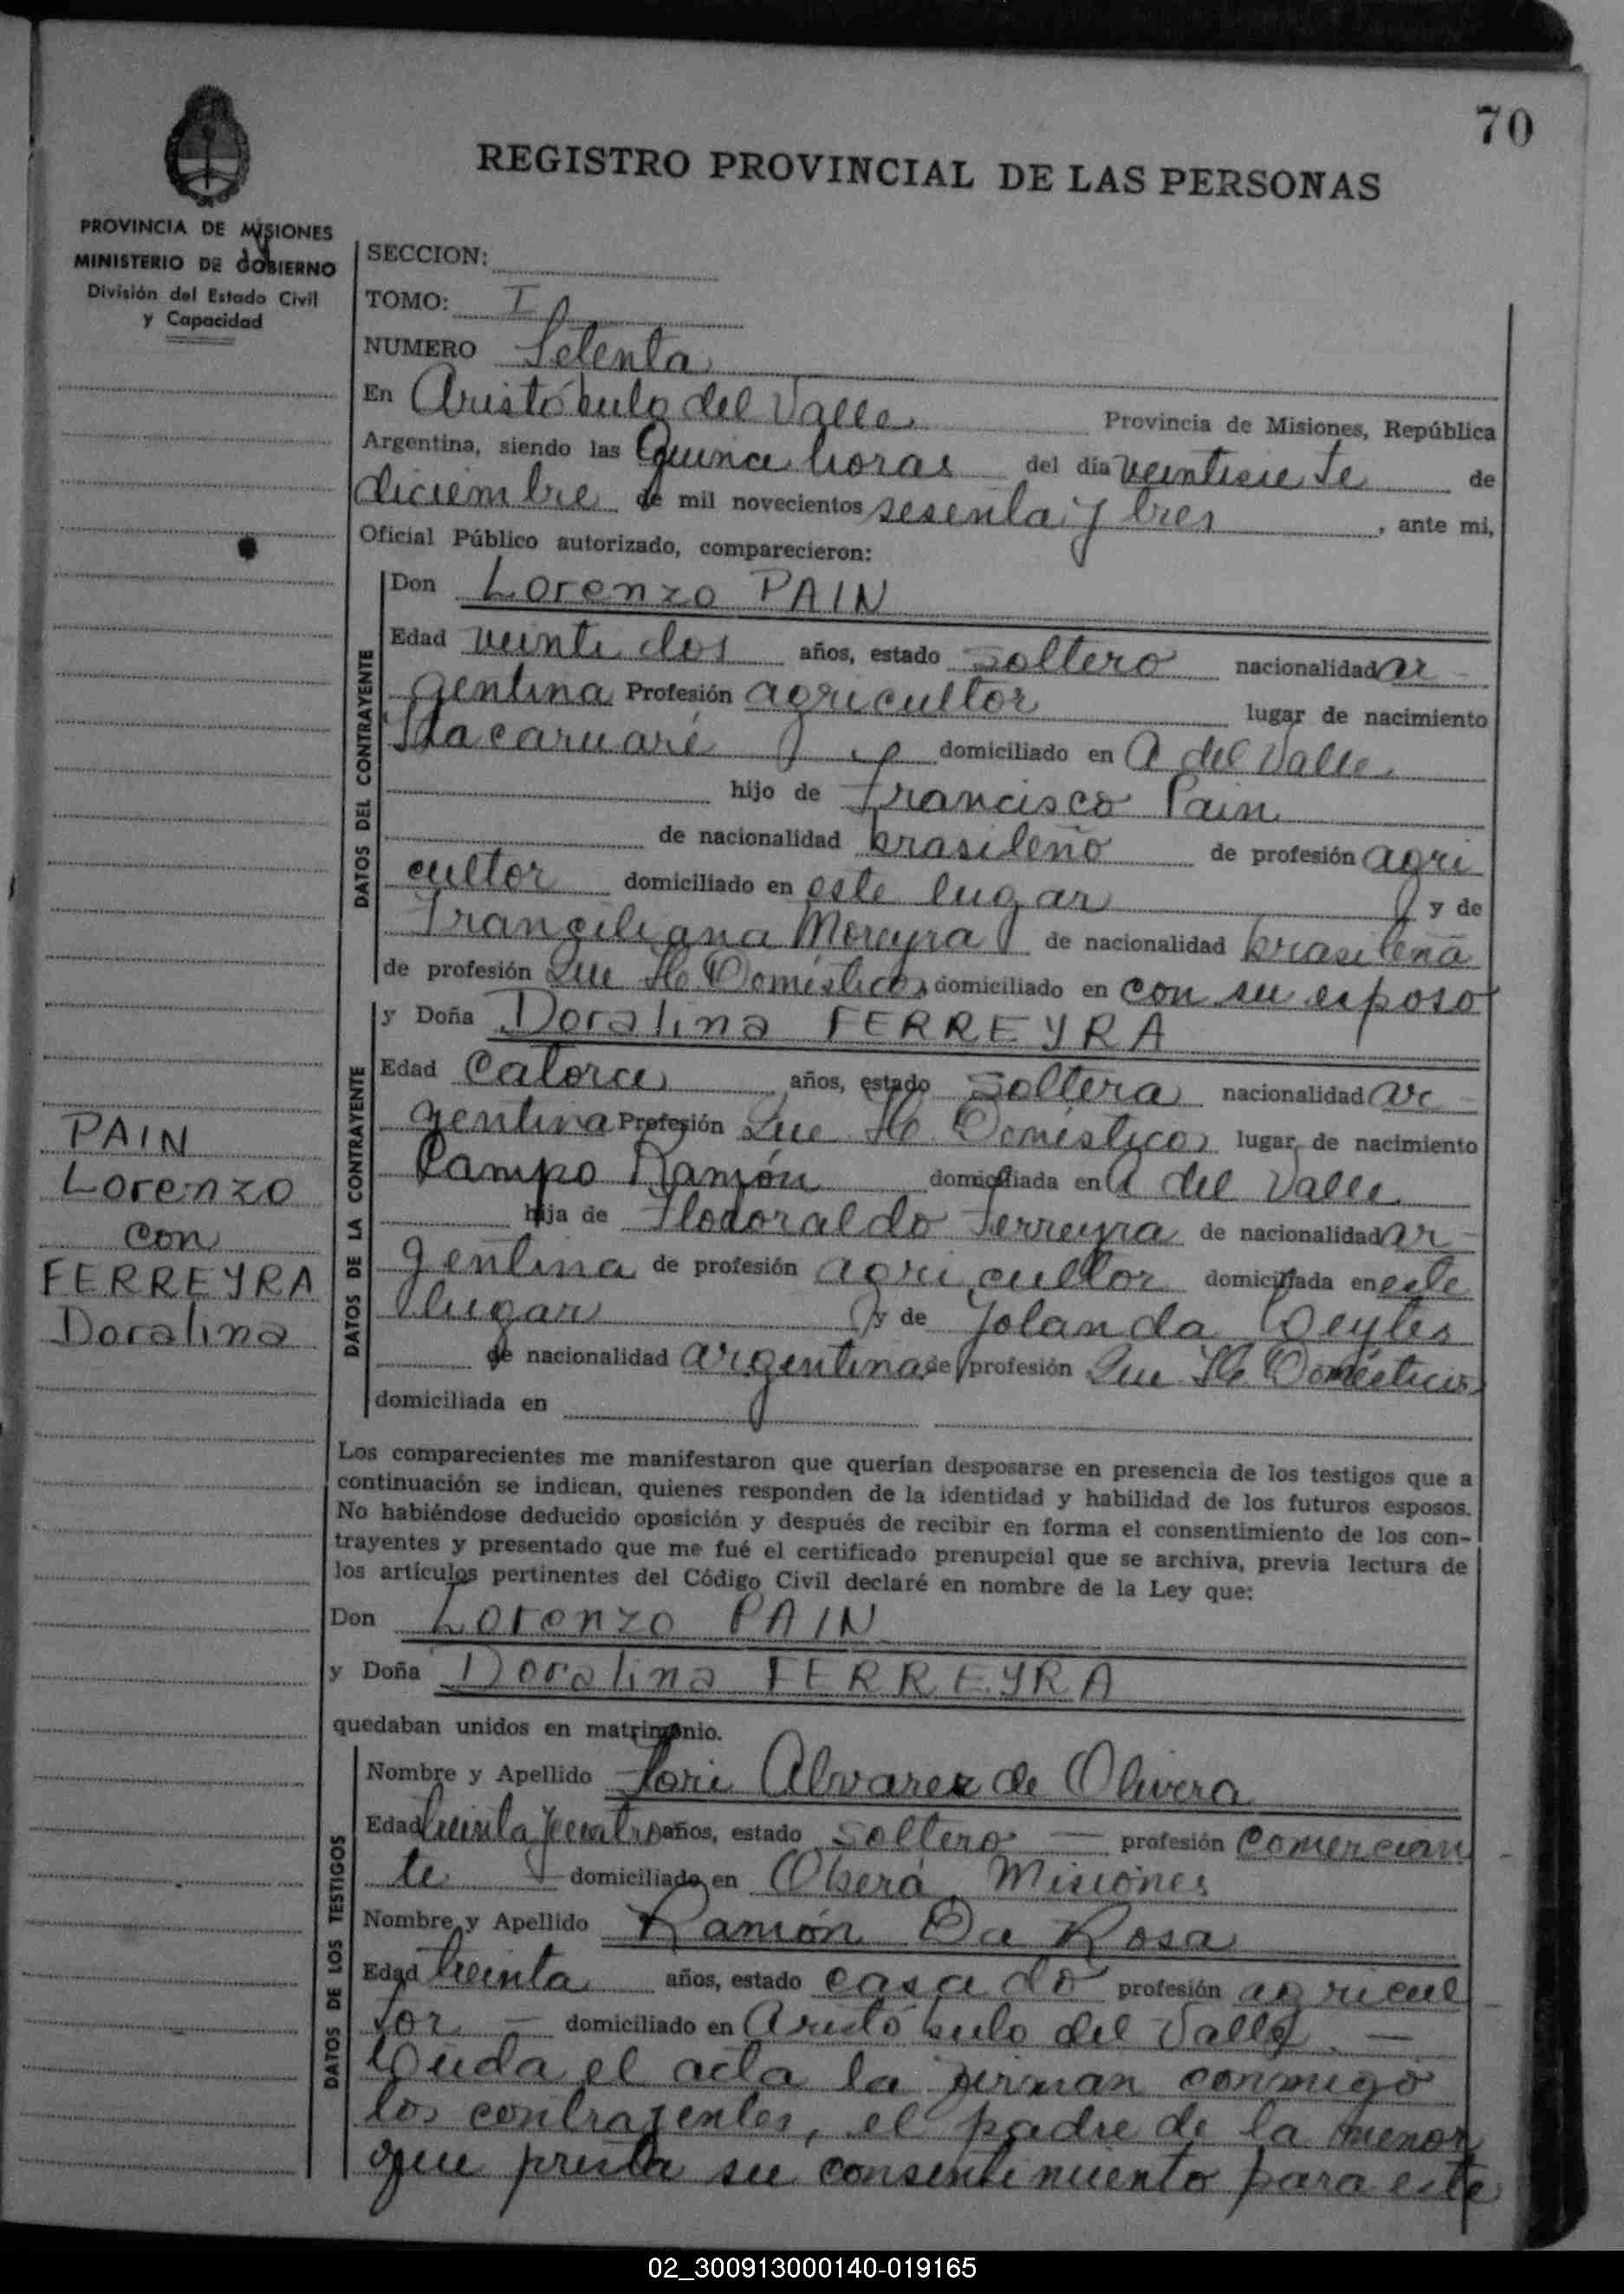 70
REGISTRO PROVINCIAL DE LAS PERSONAS
PROVINCIA DE MISIONES
MINISTERIO DE GOBIERNO
División del Estado Civil
y Capacidad
SECCION:
TOMO: I
NUMERO Setenta
En Aristóbulo del Valle Provincia de Misiones, República
Argentina, siendo las Quince horas del día veintisiete de
diciembre de mil novecientos sesenta y tres, ante mi,
Oficial Público autorizado, comparecieron:
DATOS DEL CONTRAYENTE
Don Lorenzo PAIN
Edad veinti dos años, estado soltero nacionalidad ar-
gentina Profesión agricultor lugar de nacimiento
Itacaruaré domiciliado en A del Valle
hijo de Francisco Pain
de nacionalidad brasileño de profesión agri
cultor domiciliado en este lugar y de
Moreyra de nacionalidad brasileña
de profesión Que Hc Domésticos domiciliado en con su esposo
DATOS DE LA CONTRAYENTE
y Doña Doralina FERREYRA
Edad Catorce años, estado soltera nacionalidad ar-
gentina Profesión Que Hc Domésticos lugar de nacimiento
Campo Ramón domiciliada en A del Valle
hija de Flodoraldo Ferreyra de nacionalidad ar-
gentina de profesión agricultor domiciliada en este
lugar y de Yolanda
de nacionalidad argentina de profesión Que Hc Domésticos
domiciliada en
PAIN
Lorenzo
con
FERREYRA
Doralina
Los comparecientes me manifestaron que querían desposarse en presencia de los testigos que a
continuación se indican, quienes responden de la identidad y habilidad de los futuros esposos.
No habiéndose deducido oposición y después de recibir en forma el consentimiento de los con-
trayentes y presentado que me fué el certificado prenupcial que se archiva, previa lectura de
los artículos pertinentes del Código Civil declaré en nombre de la Ley que:
Don Lorenzo PAIN
y Doña Doralina FERREYRA
quedaban unidos en matrimonio.
DATOS DE LOS TESTIGOS
Nombre y Apellido Alvarez de Olivera
Edad treinta y cuatro años, estado soltero — profesión comercian
te — domiciliado en Oberá Misiones
Nombre y Apellido Ramón Da Rosa
Edad treinta años, estado casado profesión agricul
tor — domiciliado en Aristóbulo del Valle. —
Leída el acta la firman conmigo
los contrayentes, el padre de la menor
que presta su consentimiento para este
02_300913000140-019165